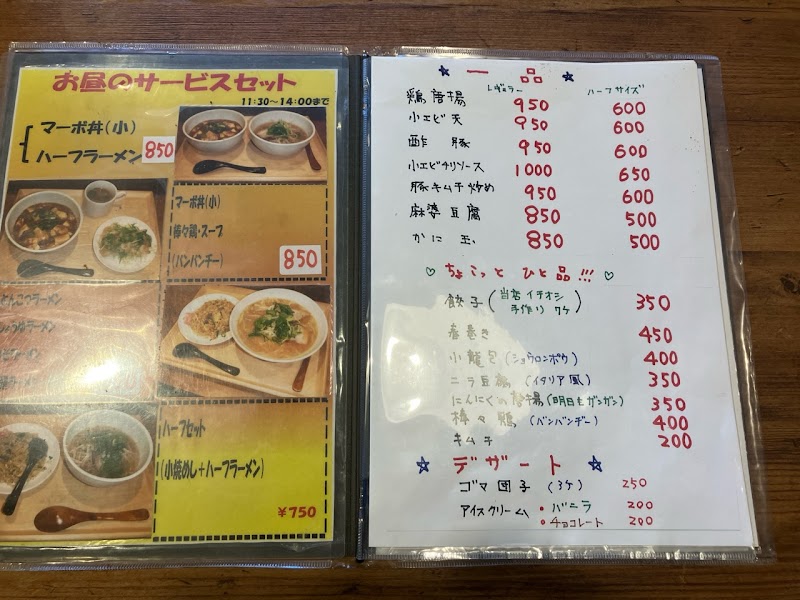 お昼のサービスセット
11:30~14:00まで
マーボ丼(小)
ハーフラーメン 850
マーボ丼(小)
棒々鶏・スープ
(バンバンチー) 850
とんこつラーメン
しょうゆラーメン
ハーフセット
(小焼めし+ハーフラーメン)
¥750
☆ 一品 ☆
レギュラー ハーフサイズ
鶏唐揚 950 600
小エビ天 950 600
酢豚 950 600
小エビチリソース 1000 650
豚キムチ炒め 950 600
麻婆豆腐 850 500
かに玉 850 500
♡ ちょこっと ひと品!!! ♡
餃子(当店イチオシ 手作り 7ケ) 350
春巻き 450
小龍包(ショウロンポウ) 400
ニラ豆腐(イタリア風) 350
にんにくの唐揚(明日もガンガン) 350
棒々鶏(バンバンヂー) 400
キムチ 200
☆ デザート ☆
ゴマ団子(3ケ) 250
アイスクリーム • バニラ 200
• チョコレート 200